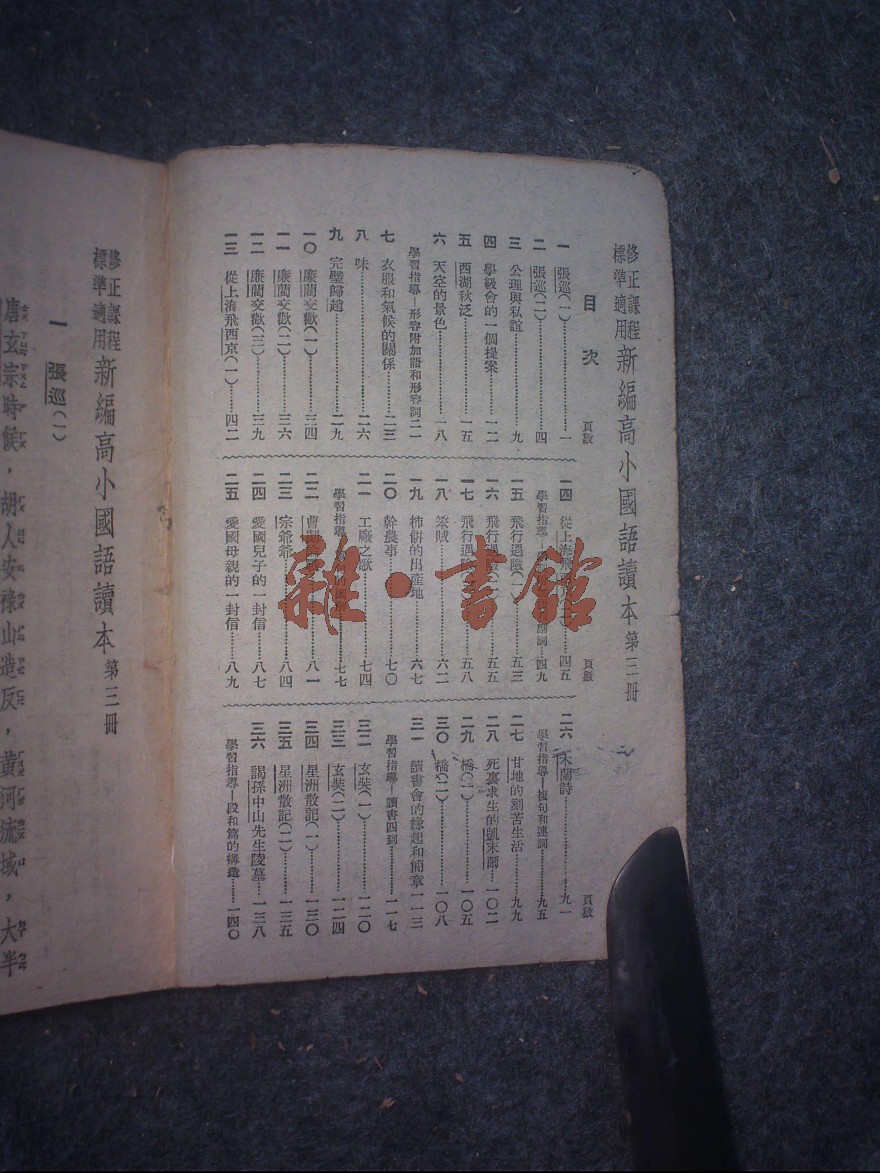 修正課程標準適用 新編高小國語讀本 第三冊
目次
頁數
一 張巡(一)……一
二 張巡(二)……四
三 公理與私誼……九
四 學級會的一個提案……一二
五 西湖秋泛……一五
六 天空的景色……一八
學習指導—形容附加語和形容詞二一
七 衣服和氣候的關係……二三
八 味……二六
九 完璧歸趙……二九
一〇 廉藺交歡(一)……三四
一一 廉藺交歡(二)……三六
一二 廉藺交歡(三)……三九
一三 從上海飛西京(一)……四二
頁數
一四 從上海飛……四五
學習指導……詞……四九
一五 飛行遇險(一)……五三
一六 飛行遇險……五五
一七 飛行遇險……五八
一八 築賊……六二
一九 柿餅的出產地……六七
二〇 幹農事……七〇
二一 工廠之歌……七四
學習指導……七七
二二 曹……八一
二三 宗爺爺……八四
二四 愛國兒子的一封信……八七
二五 愛國母親的一封信……八九
頁數
二六 木蘭詩……九一
學習指導—複句和連詞……九五
二七 甘地的刻苦生活……九九
二八 死裏求生的凱末爾……一〇二
二九 橋(一)……一〇五
三〇 橋(二)……一〇八
三一 讀書會的緣起和簡章一一三
學習指導—讀書四到……一一七
三二 玄奘(一)……一二〇
三三 玄奘(二)……一二四
三四 星洲散記(一)……一三〇
三五 星洲散記(二)……一三五
三六 謁孫中山先生陵墓……一三八
學習指導—段和篇的構造……一四〇
雜·書館
修正課程標準適用 新編高小國語讀本 第三冊
一 張巡(一)
唐玄宗時候,胡人安祿山造反,黃河流域,大半